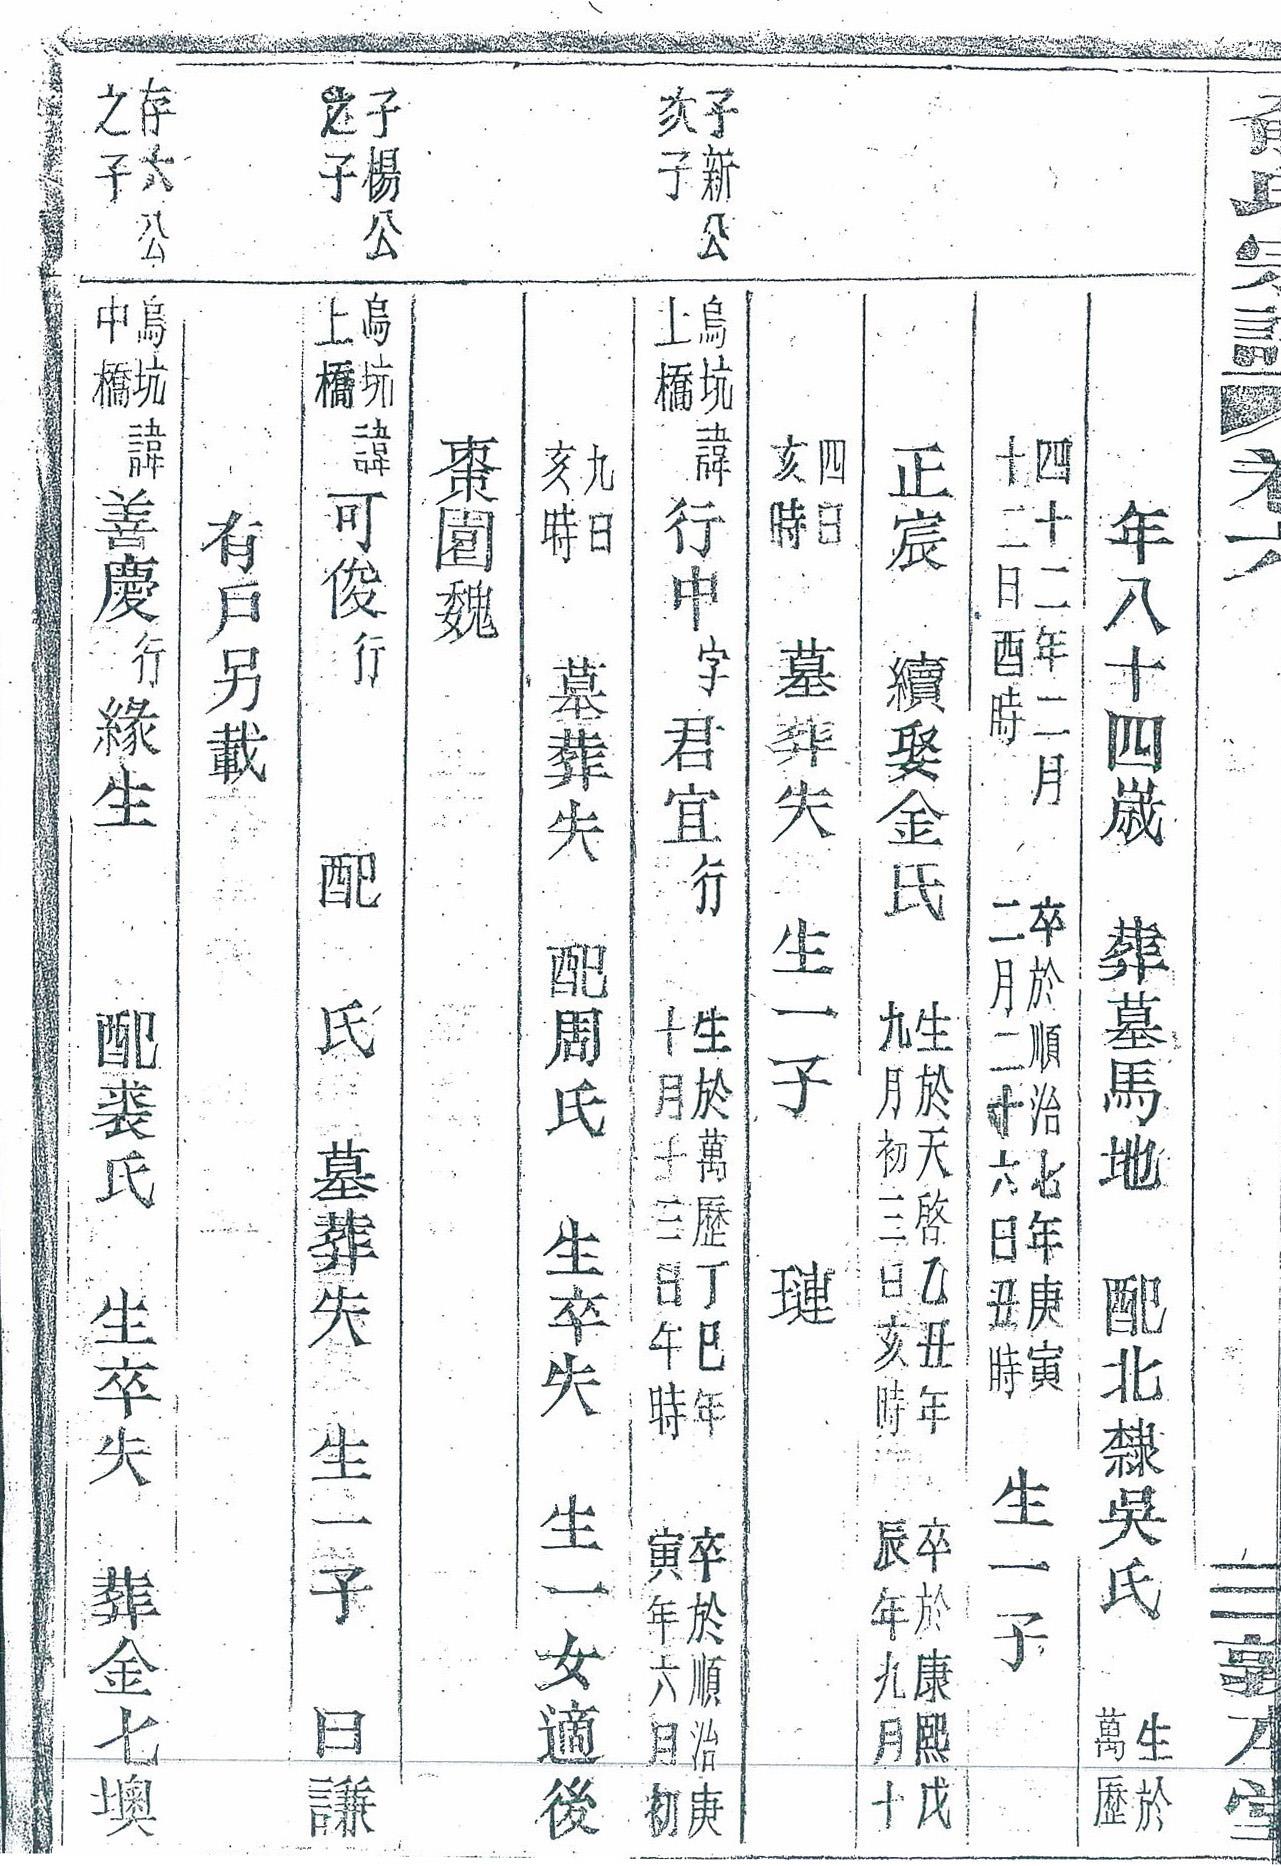 氏宗譜 卷六
三 敦本堂
年八十四歲 葬墓馬地 配北隸吳氏 生於萬歷
四十二年二月十二日酉時 卒於順治七年庚寅二月二十六日丑時 生一子
正宸 續娶金氏 生於天啓乙丑年九月初三日亥時 卒於康熙戊辰年九月十
四日亥時 墓葬失 生一子 璉
子新公次子
烏坑上橋 諱行中字君宜行 生於萬歷丁巳年十月十三日午時 卒於順治庚寅年六月初
九日亥時 墓葬失 配周氏 生卒失 生一女適後
棗園魏
子楊公之子
烏坑上橋 諱可俊行 配 氏 墓葬失 生一子 曰謙
有戶另載
存六公之子
烏坑中橋 諱善慶行緣生 配裘氏 生卒失 葬金七墺